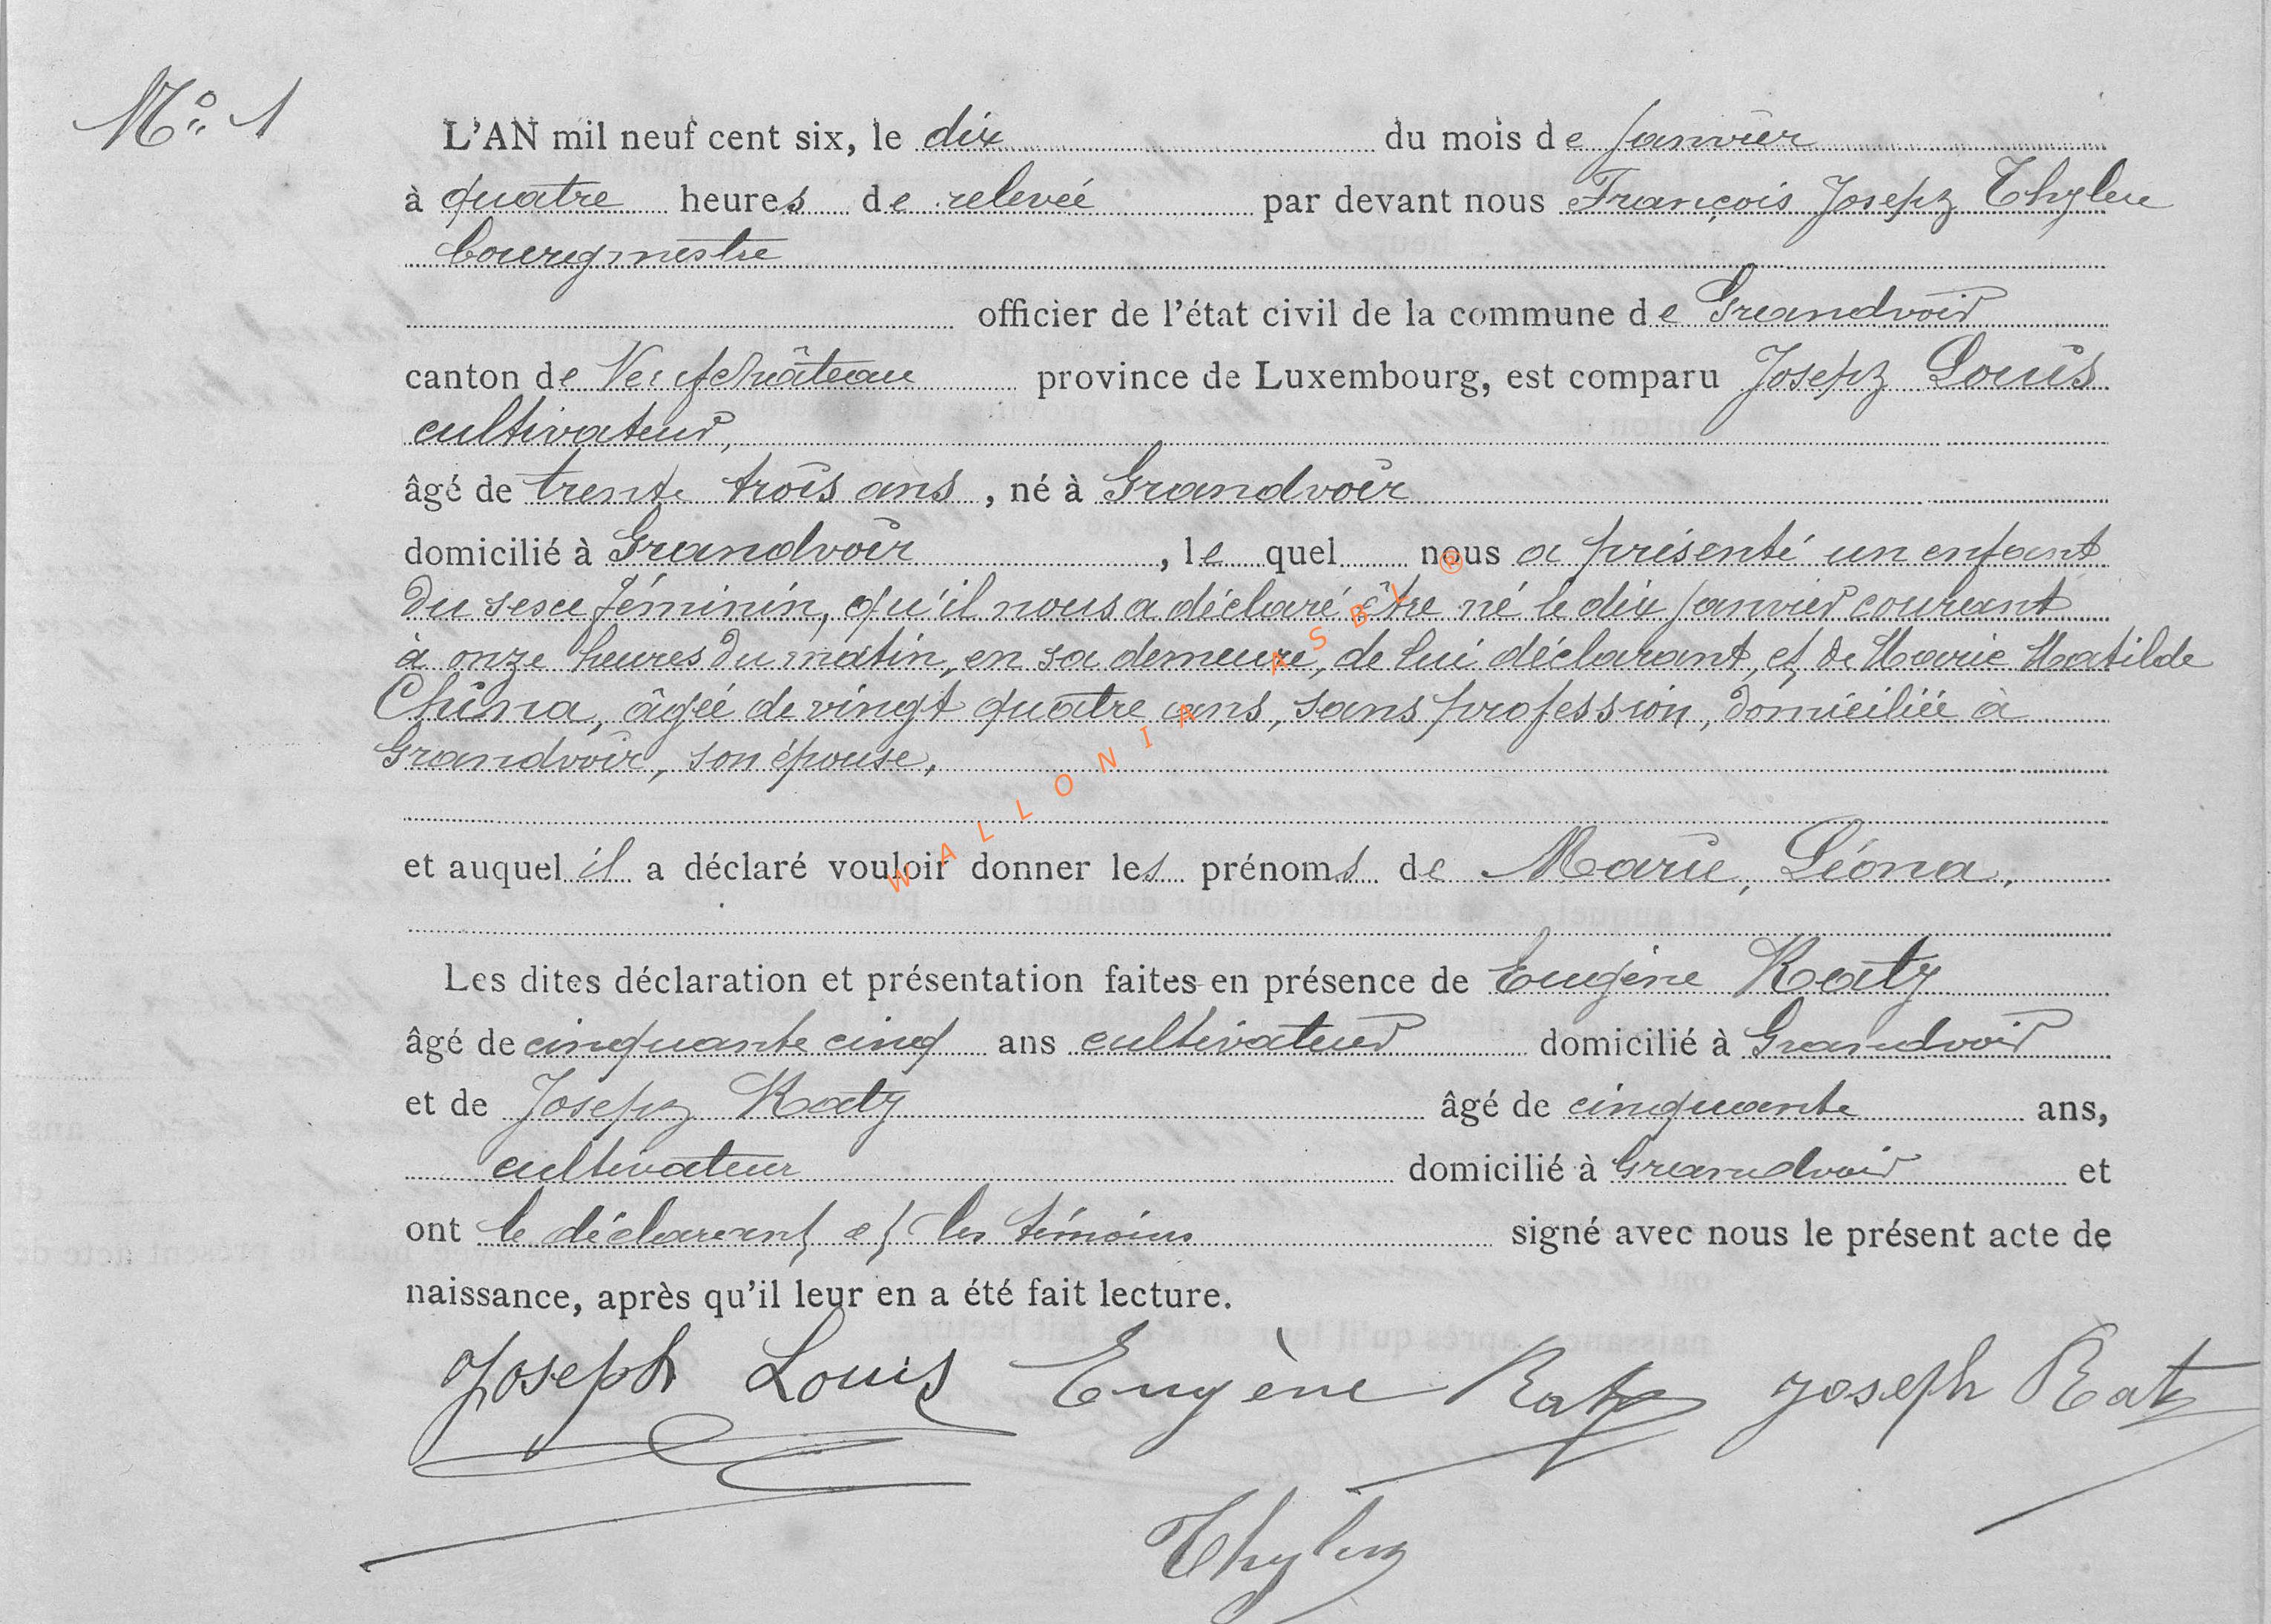 N° 1
L'AN mil neuf cent six, le dix du mois de janvier
à quatre heures de relevée par devant nous François Joseph
bourgmestre
officier de l'état civil de la commune de Grandvoir
canton de Neufchâteau province de Luxembourg, est comparu Joseph Louis
cultivateur,
âgé de trente trois ans, né à Grandvoir
domicilié à Grandvoir, le quel nous a présenté un enfant
du sexe féminin, qu'il nous a déclaré être né le dix janvier courant
à onze heures du matin, en sa demeure, de lui déclarant, et de Marie Matilde
China, âgée de vingt quatre ans, sans profession, domiciliée à
Grandvoir, son épouse,
et auquel il a déclaré vouloir donner les prénoms de Marie, Léona,
Les dites déclaration et présentation faites en présence de Eugène Ratz
âgé de cinquante cinq ans cultivateur domicilié à Grandvoir
et de Joseph Ratz âgé de cinquante ans,
cultivateur domicilié à Grandvoir et
ont le déclarant et les témoins signé avec nous le présent acte de
naissance, après qu'il leur en a été fait lecture.
Joseph Louis Eugène Ratz Joseph Ratz
WALLONIA ASBL ®